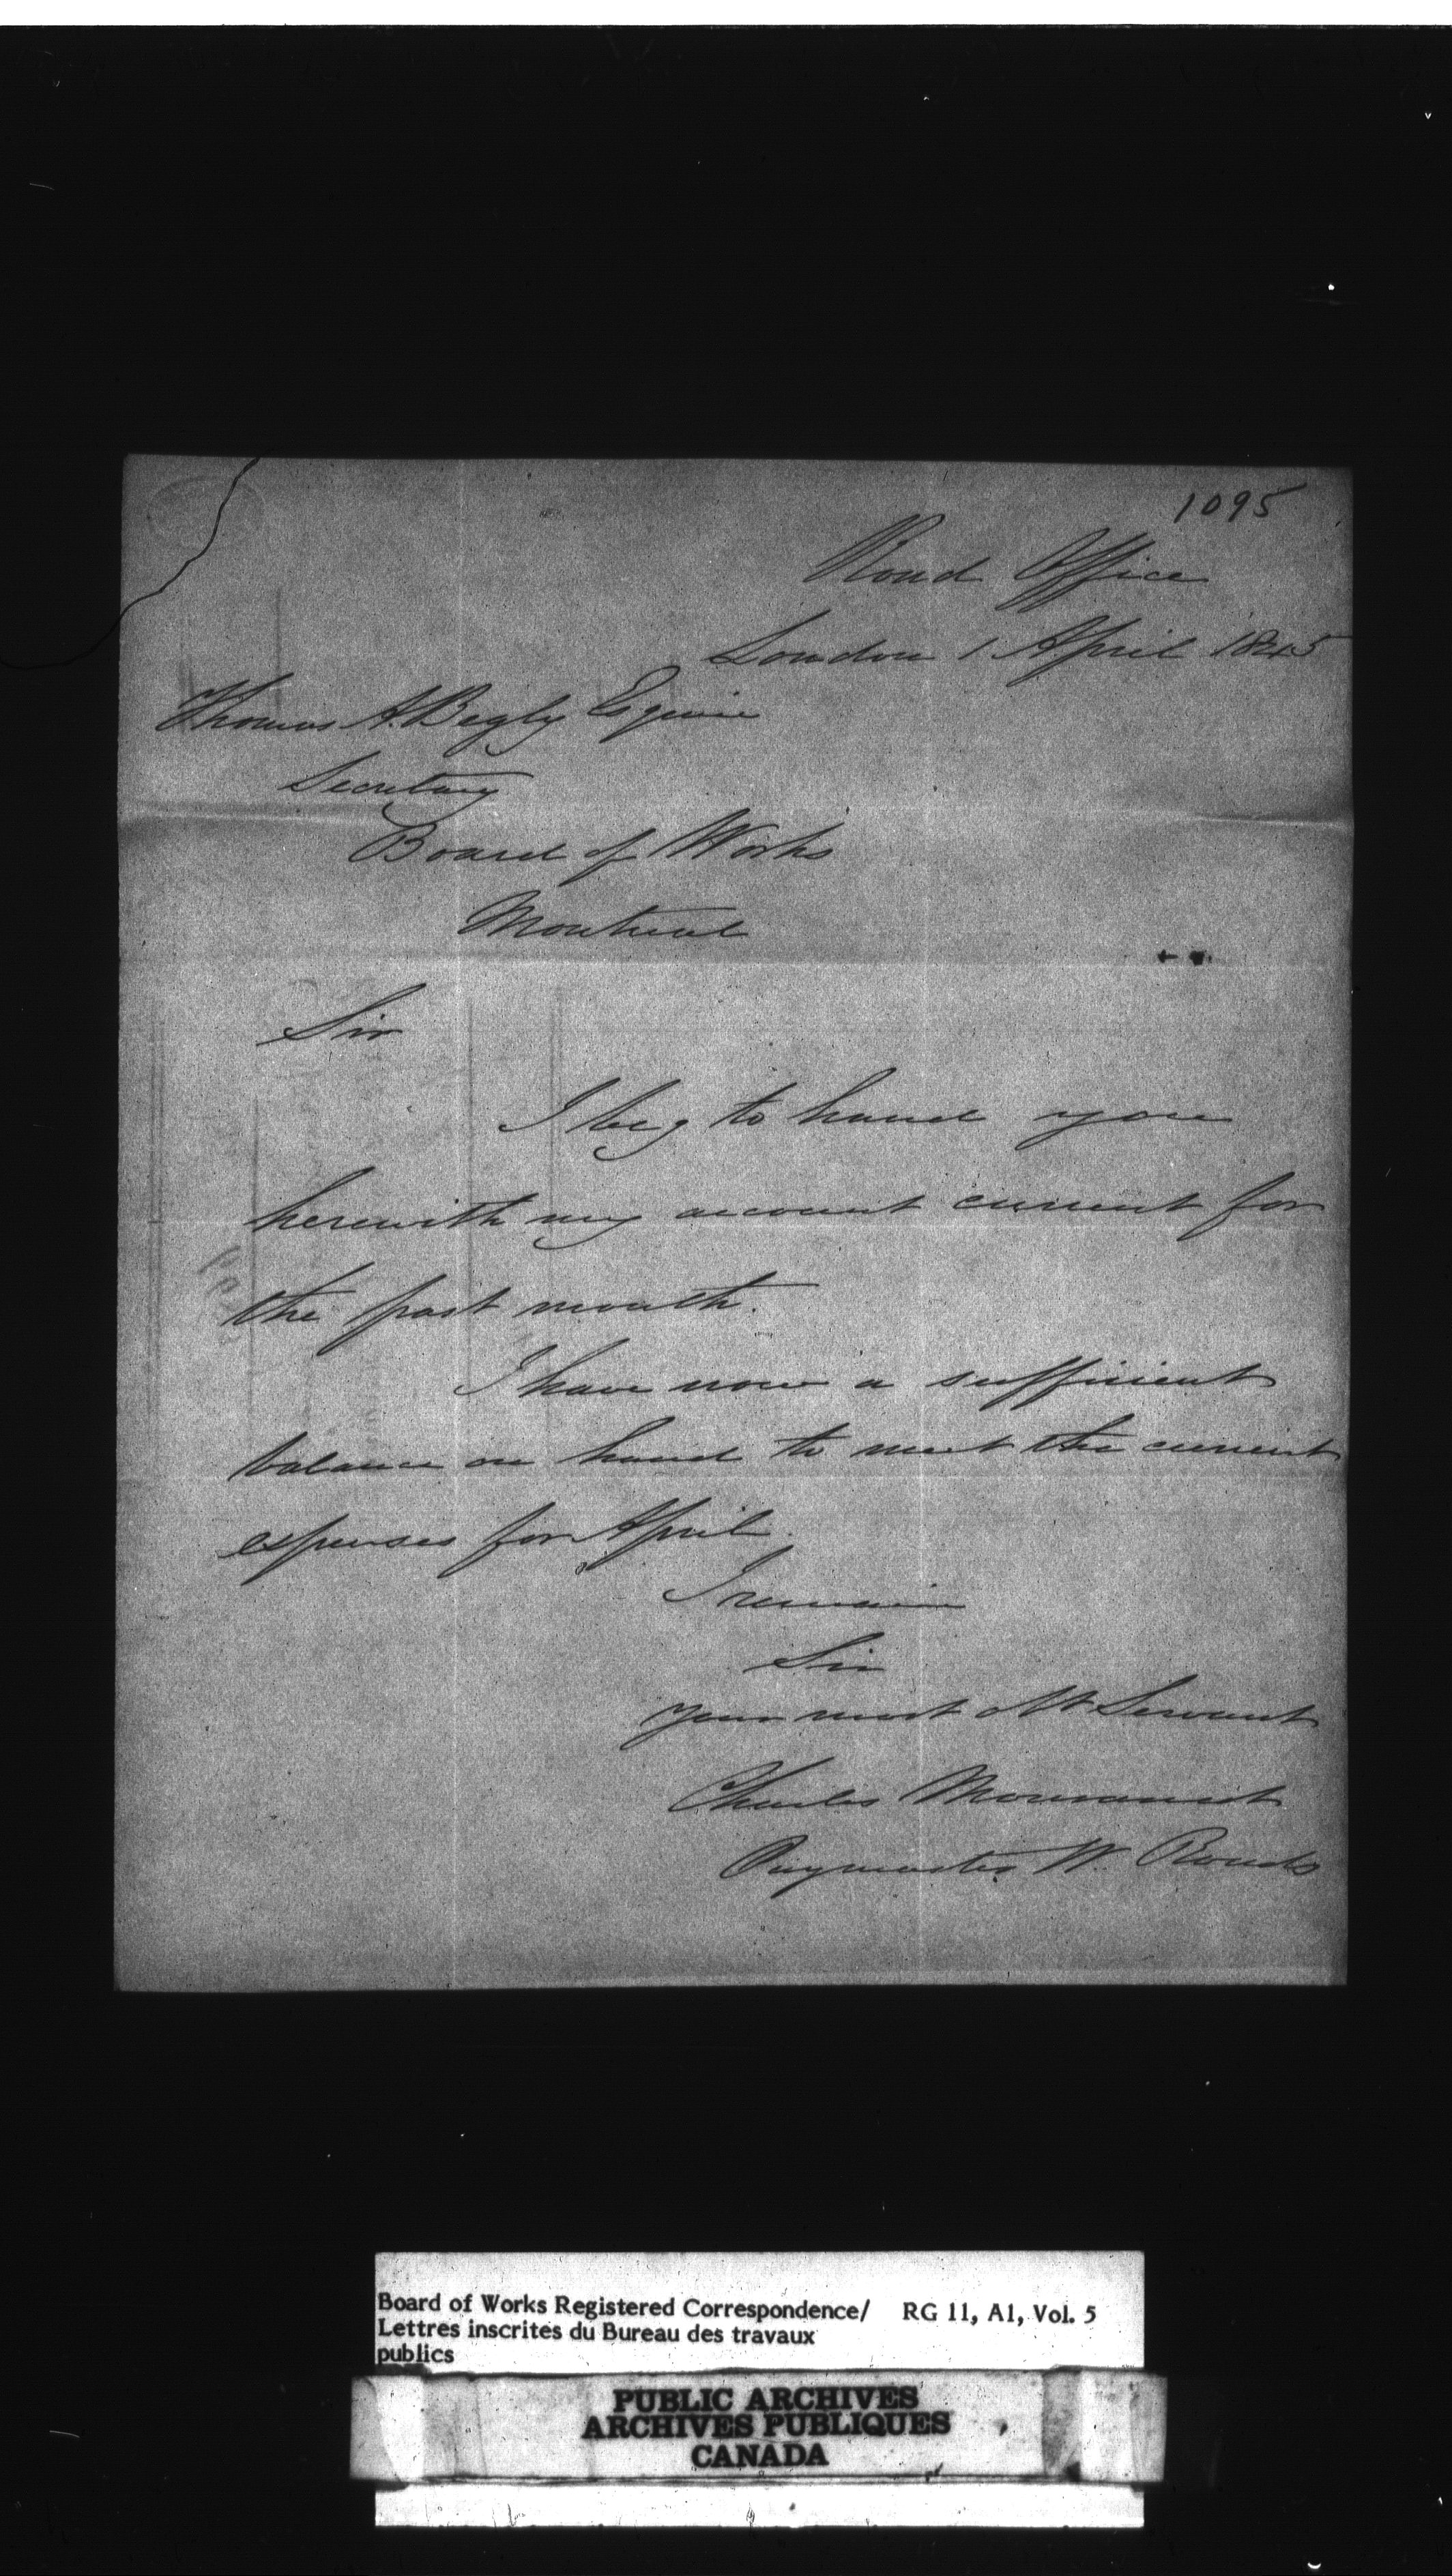 1095
Road Office
London 1 April 1845
Thomas A. Begly Esquire
Secretary
Board of Works
Montreal
Sir
I beg to hand you
herewith my account current for
the past month.
I have now a sufficient
balance on hand to meet the current
expenses for April.
I remain
Sir
your most Obt Servant
Charles
Paymaster W. Roads
Board of Works Registered Correspondence/ RG 11, A1, Vol. 5
Lettres inscrites du Bureau des travaux
publics
PUBLIC ARCHIVES
ARCHIVES PUBLIQUES
CANADA